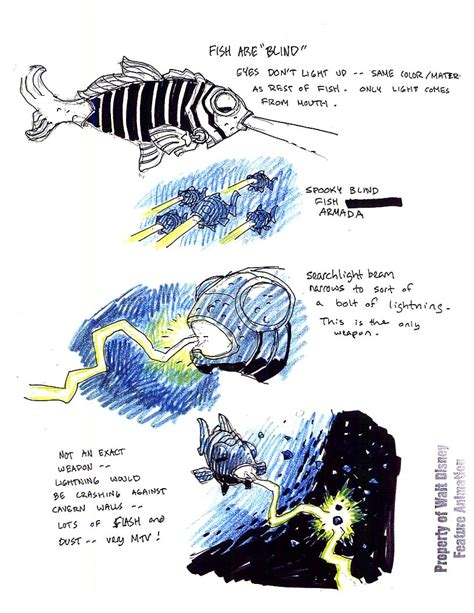 FISH ARE "BLIND"
EYES DON'T LIGHT UP -- SAME COLOR/MATER.
AS REST OF FISH. ONLY LIGHT COMES
FROM MOUTH.
SPOOKY BLIND
FISH
ARMADA
searchlight beam
narrows to sort of
a bolt of lightning.
This is the only
weapon.
NOT AN EXACT
WEAPON --
LIGHTNING WOULD
BE CRASHING AGAINST
CAVERN WALLS --
LOTS OF FLASH and
DUST -- VERY MTV!
Property of Walt Disney
Feature Animation